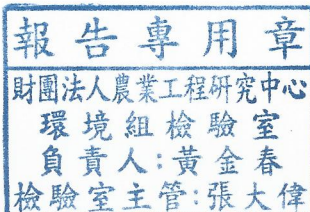 報告專用章
財團法人農業工程研究中心
環境組檢驗室
負責人:黃金春
檢驗室主管:張大偉